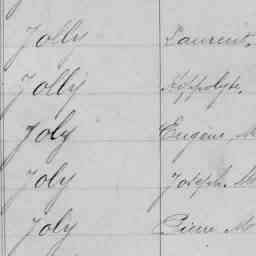 Jolly Laurent.
Jolly Hippolyte.
Joly Eugène, M
Joly Joseph. M
Joly Pierre M